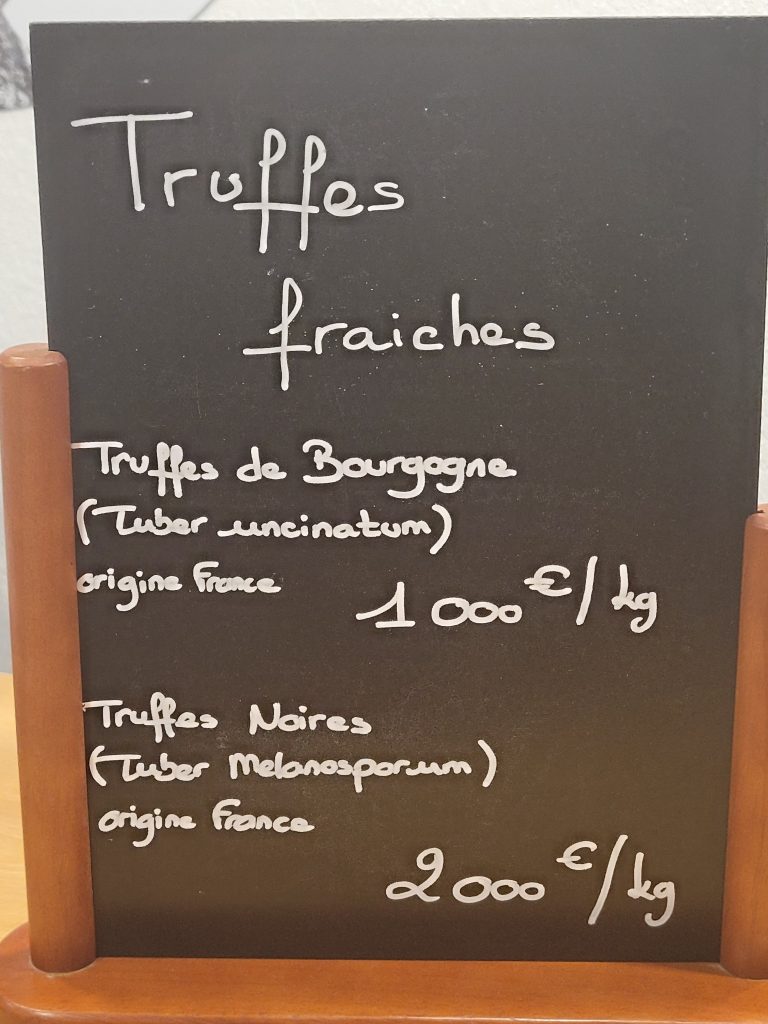 Truffes
fraiches
Truffes de Bourgogne
(Tuber uncinatum)
origine France
1 000 €/kg
Truffes Noires
(Tuber Melanosporum)
origine France
2 000 €/kg